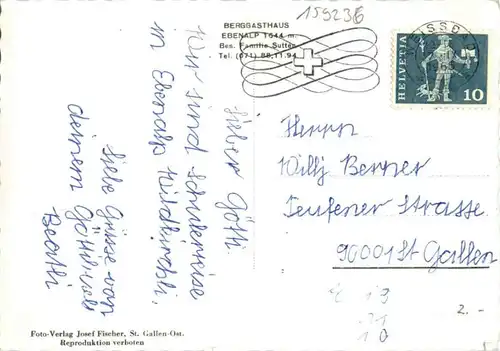 BERGGASTHAUS
EBENALP 1644 m.
Bes. Familie Sutter
Tel. (071) 88.11.94
159236
HELVETIA
10
Lieber Götti
Wir sind Schulreise
in Ebenalp Wildkirchli.
Liebe Grüsse von
deinem Göttibueb
Herrn
Willy Berner
Teufener Strasse
90001 St Gallen
2.-
Foto-Verlag Josef Fischer, St. Gallen-Ost.
Reproduktion verboten